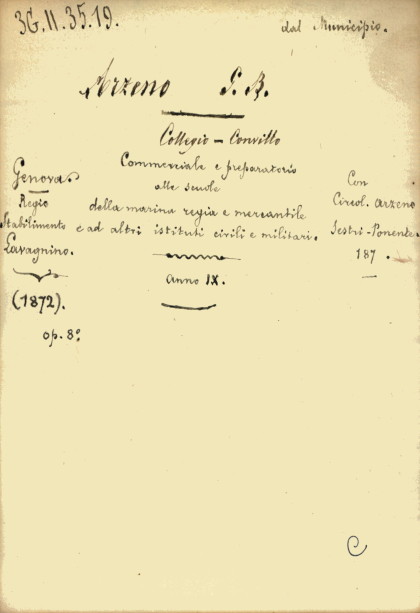 3G.II.35.19.
dal Municipio.
Arzeno G. B.
Collegio - Convitto
Commerciale e preparatorio
alle scuole
della marina regia e mercantile
e ad altri istituti civili e militari.
Anno IX.
Genova.
Regio
Stabilimento
Lavagnino.
(1872).
op. 8º
Con
Circol. Arzeno
Sestri-Ponente.
187 .
C